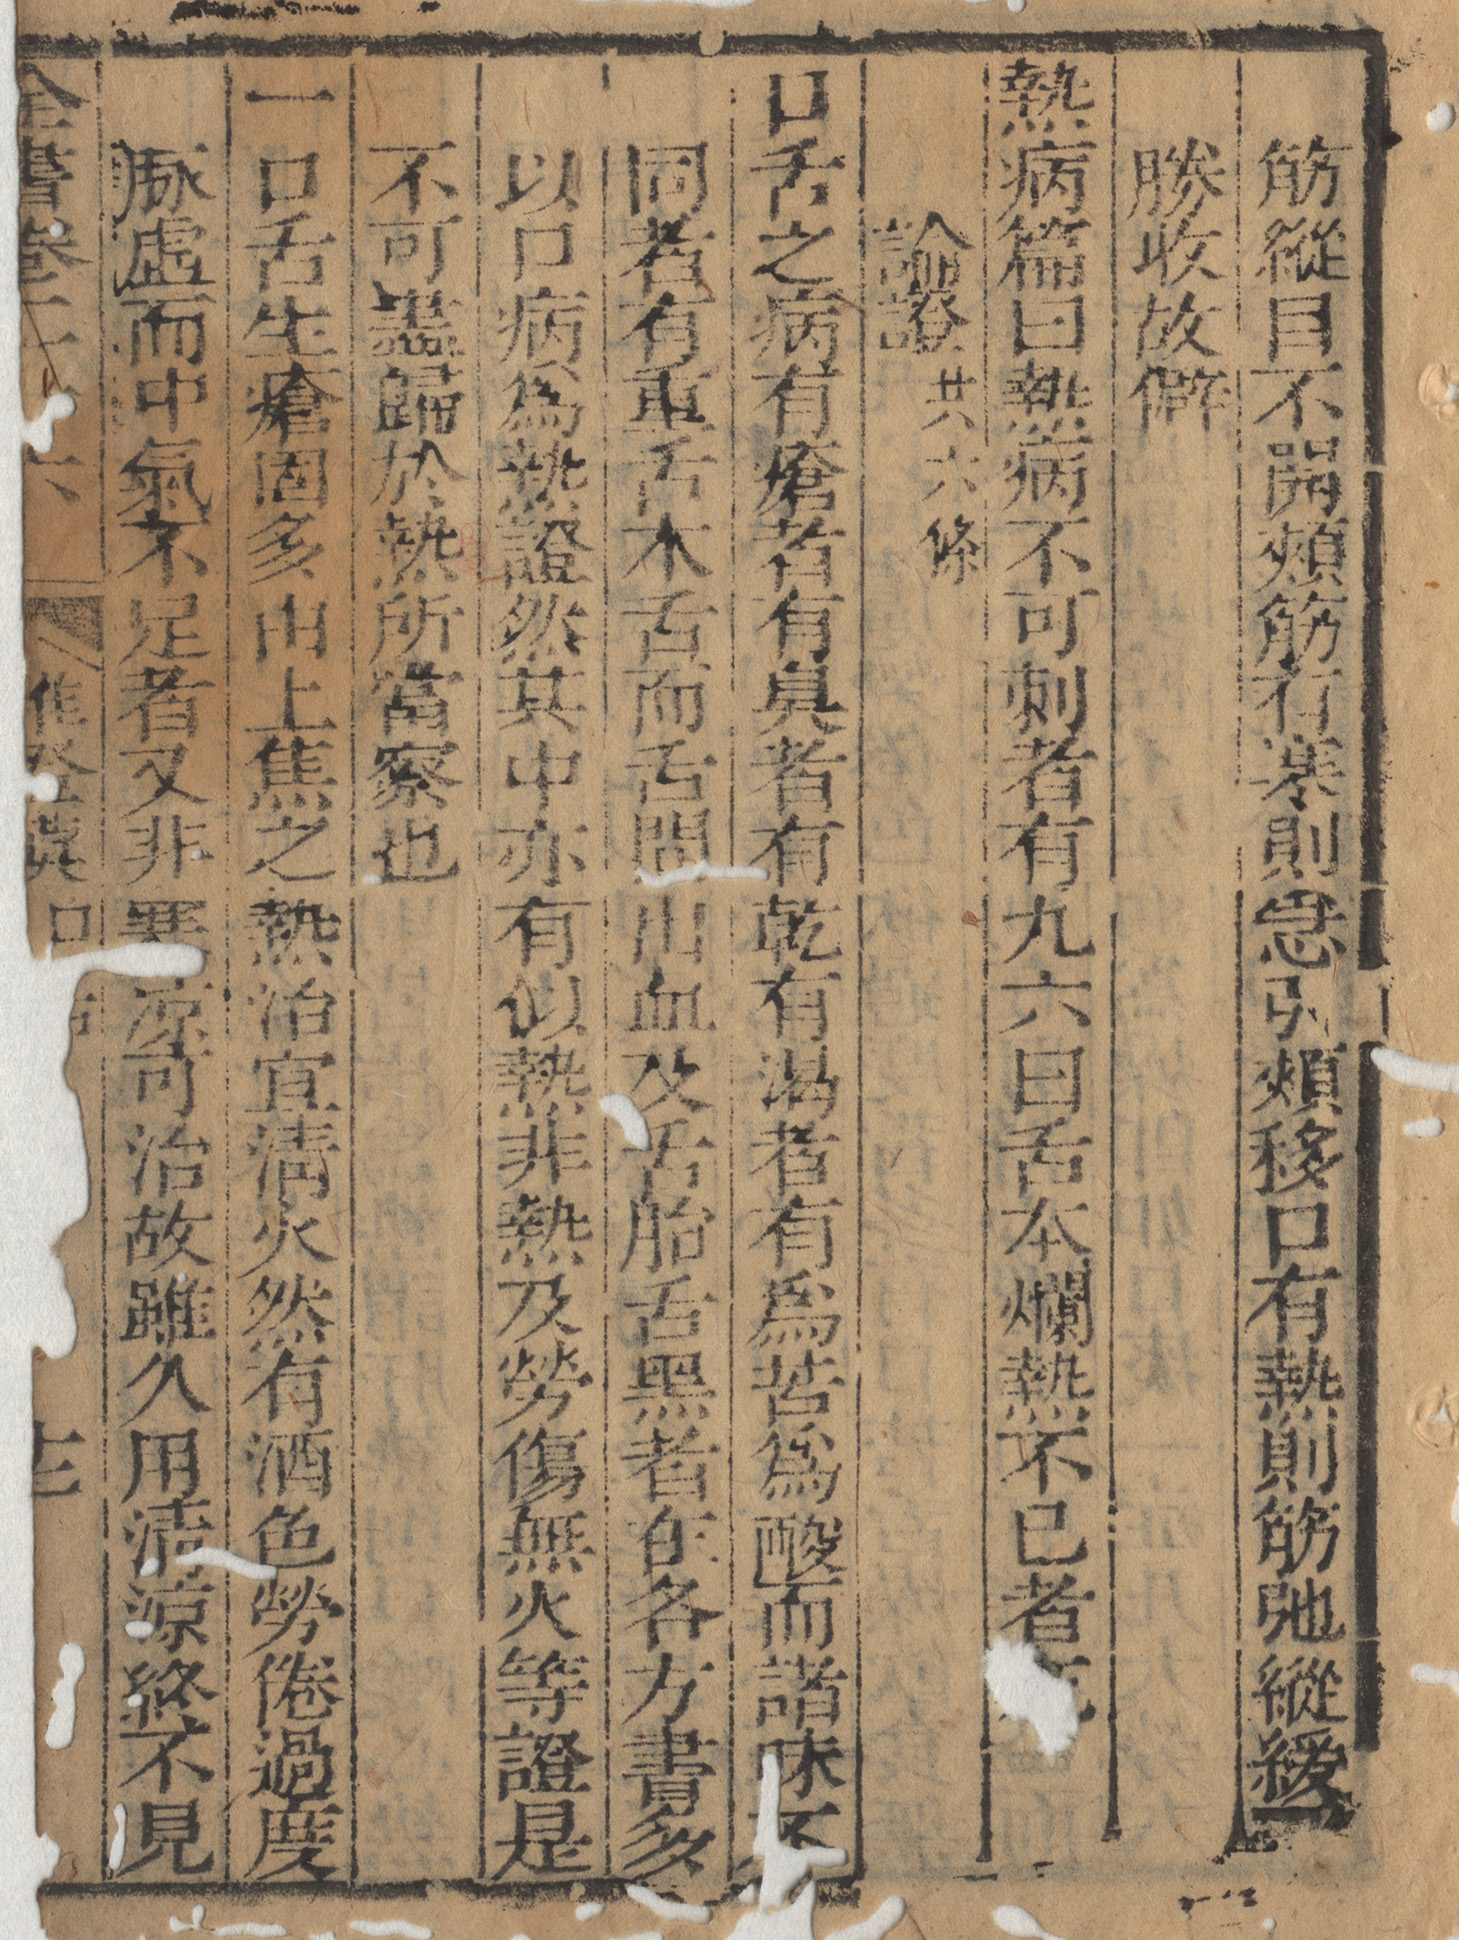 筋縱目不開頰筋有寒則急引頰移口有熱則筋弛縱緩不
勝收故僻
熱病篇曰熱病不可刺者有九六曰舌本爛熱不已者死
論證共六條
口舌之病有瘡者有臭者有乾有渴者有爲苦爲酸而諸味不
同者有重舌木舌而舌間出血及舌胎舌黑者在各方書多
以口病爲熱證然其中亦有似熱非熱及勞傷無火等證是
不可盡歸於熱所當察也
一口舌生瘡固多由上焦之熱治宜清火然有酒色勞倦過度
脉虛而中氣不足者又非寒凉可治故雖久用清涼終不見
全書卷二六 雜證 口 十三